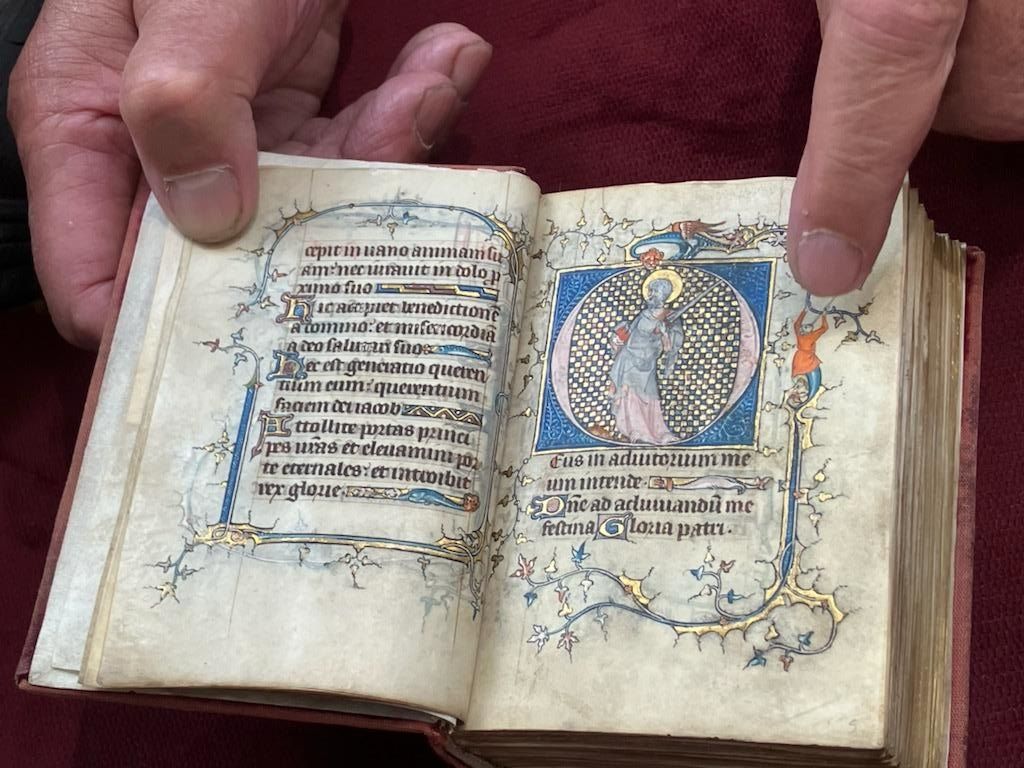 cepit in uano animam su
am: nec iurauit in dolo p
ximo suo
Hic accipiet benedictionē
a domino: et misericordiā
a deo salutari suo
Hec est generatio queren
tium eum: querentium
faciem dei iacob
Attollite portas princi
pes uras et eleuamini por
te eternales: et introibit
rex glorie
Eus in adiutorium me
um intende
Dñe ad adiuuandū me
festina Gloria patri.